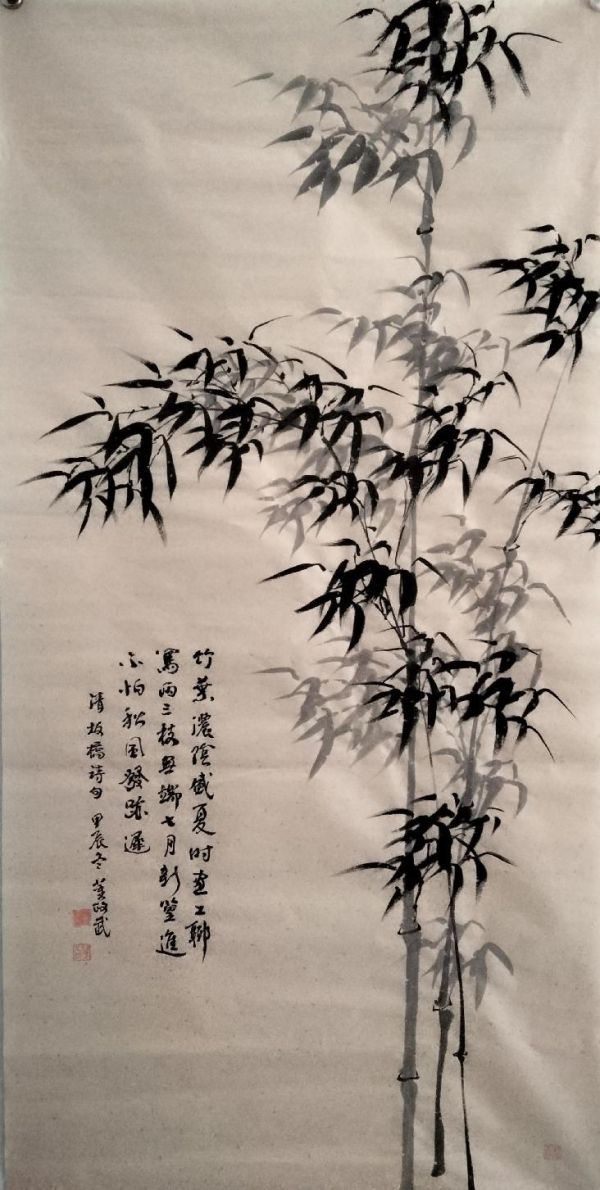 竹葉濃陰盛夏时画工聊
寫两三枝無端七月新篁進
不怕秋風發跡遲
清板橋詩句 甲辰冬